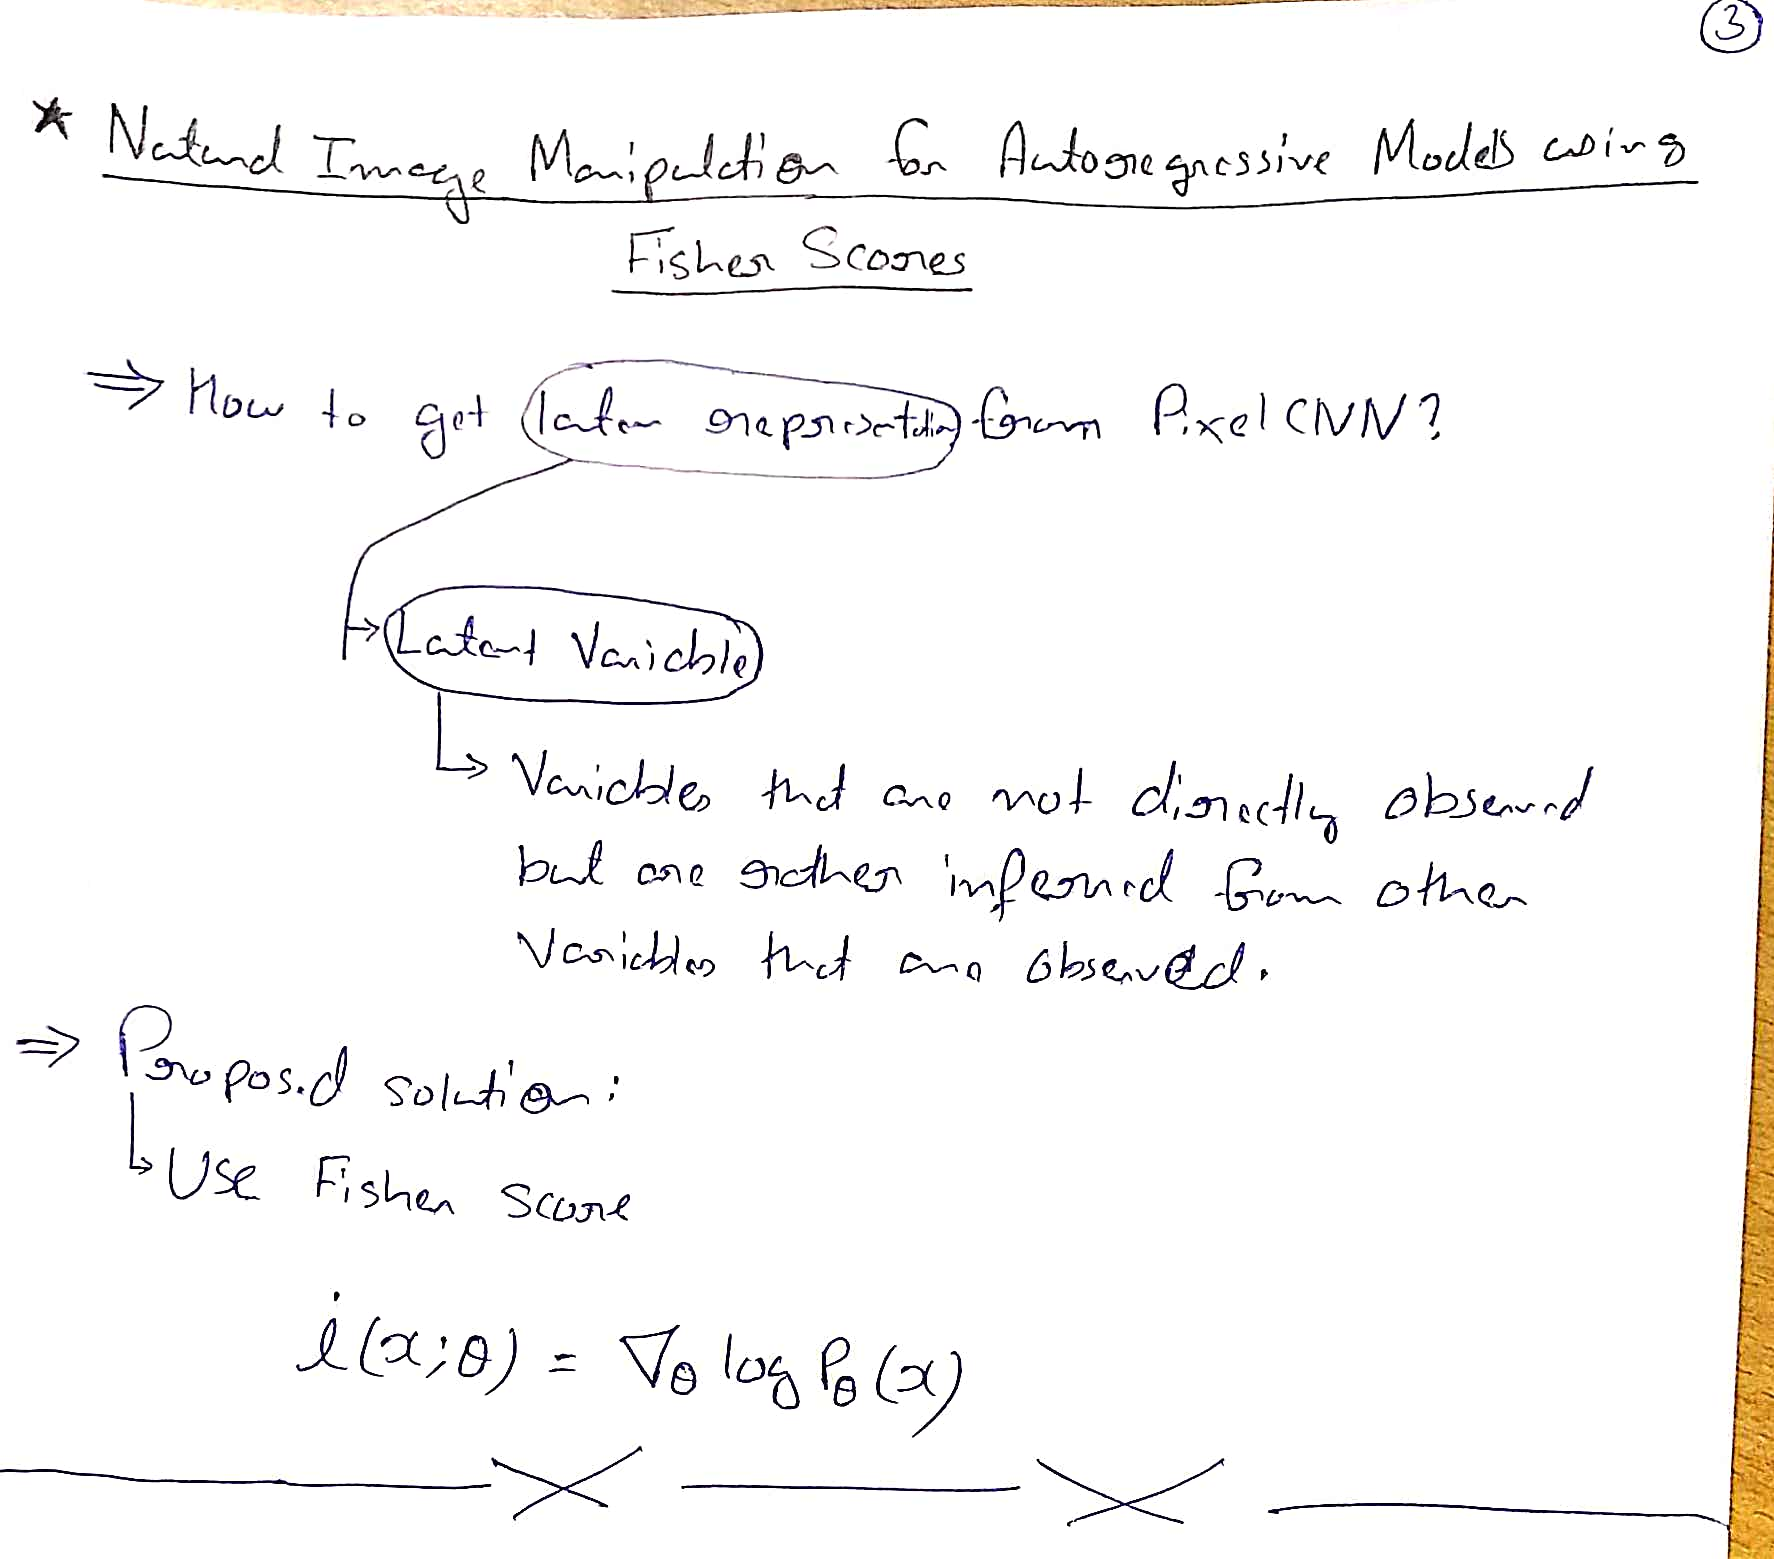 3
* Natural Image Manipulation for Autoregressive Models using
Fisher Scores
⇒ How to get laten representation from PixelCNN?
Latent Variable
↳ Variables that are not directly observed
but are rather inferred from other
Variables that are observed.
⇒ Proposed solution:
↳ Use Fisher score
l̇(x;θ) = ∇θ log Pθ(x)